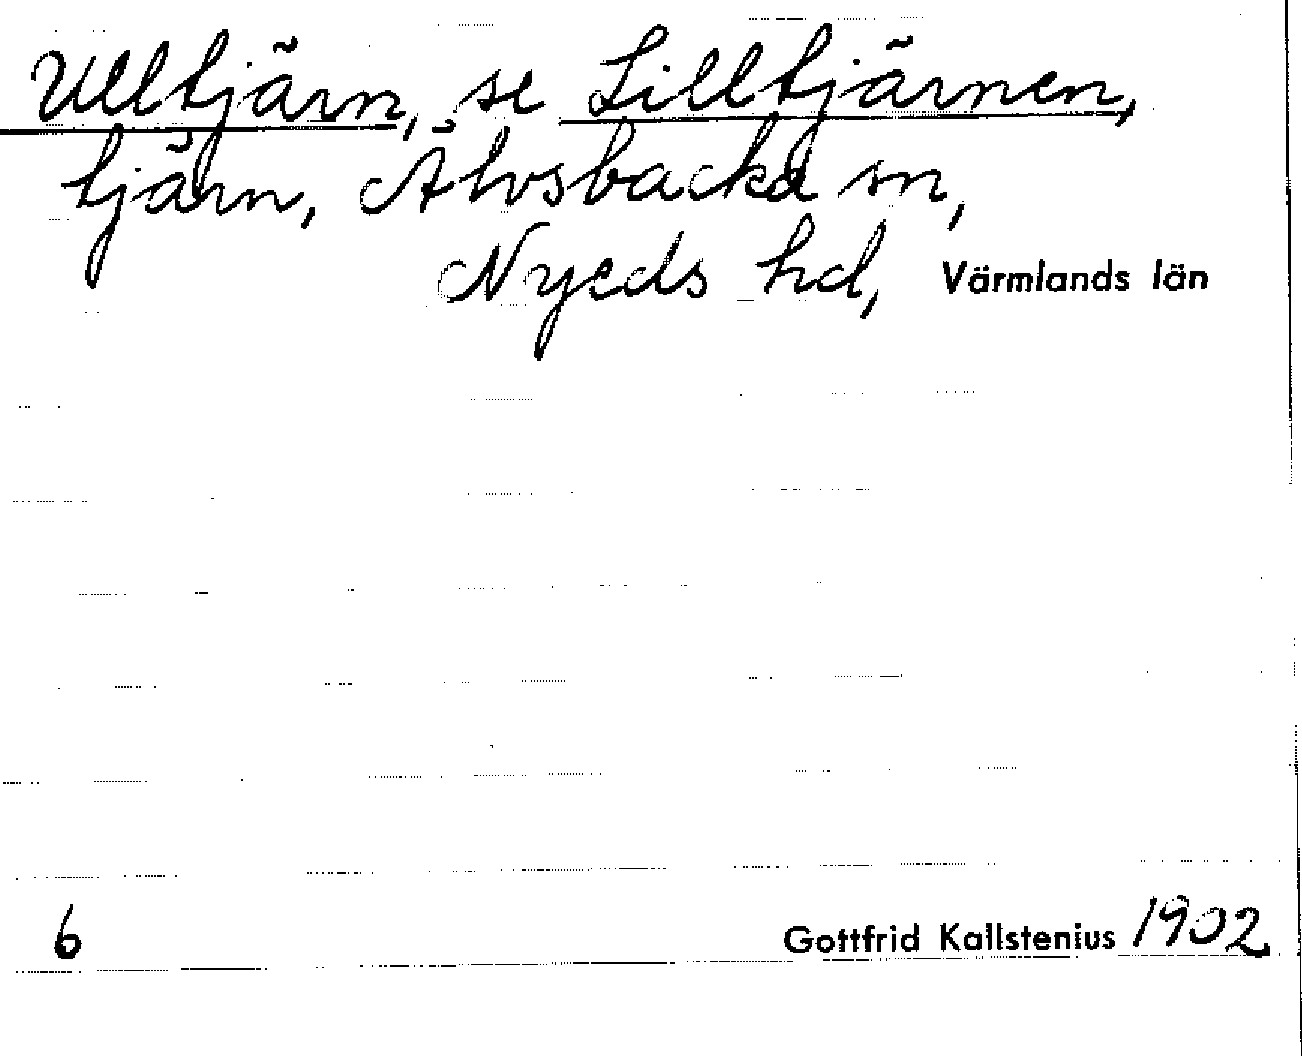 Ulltjärn, se Lilltjärnen,
tjärn, Älvsbacka sn,
Nyeds hd, Värmlands län
6 Gottfrid Kallstenius 1902